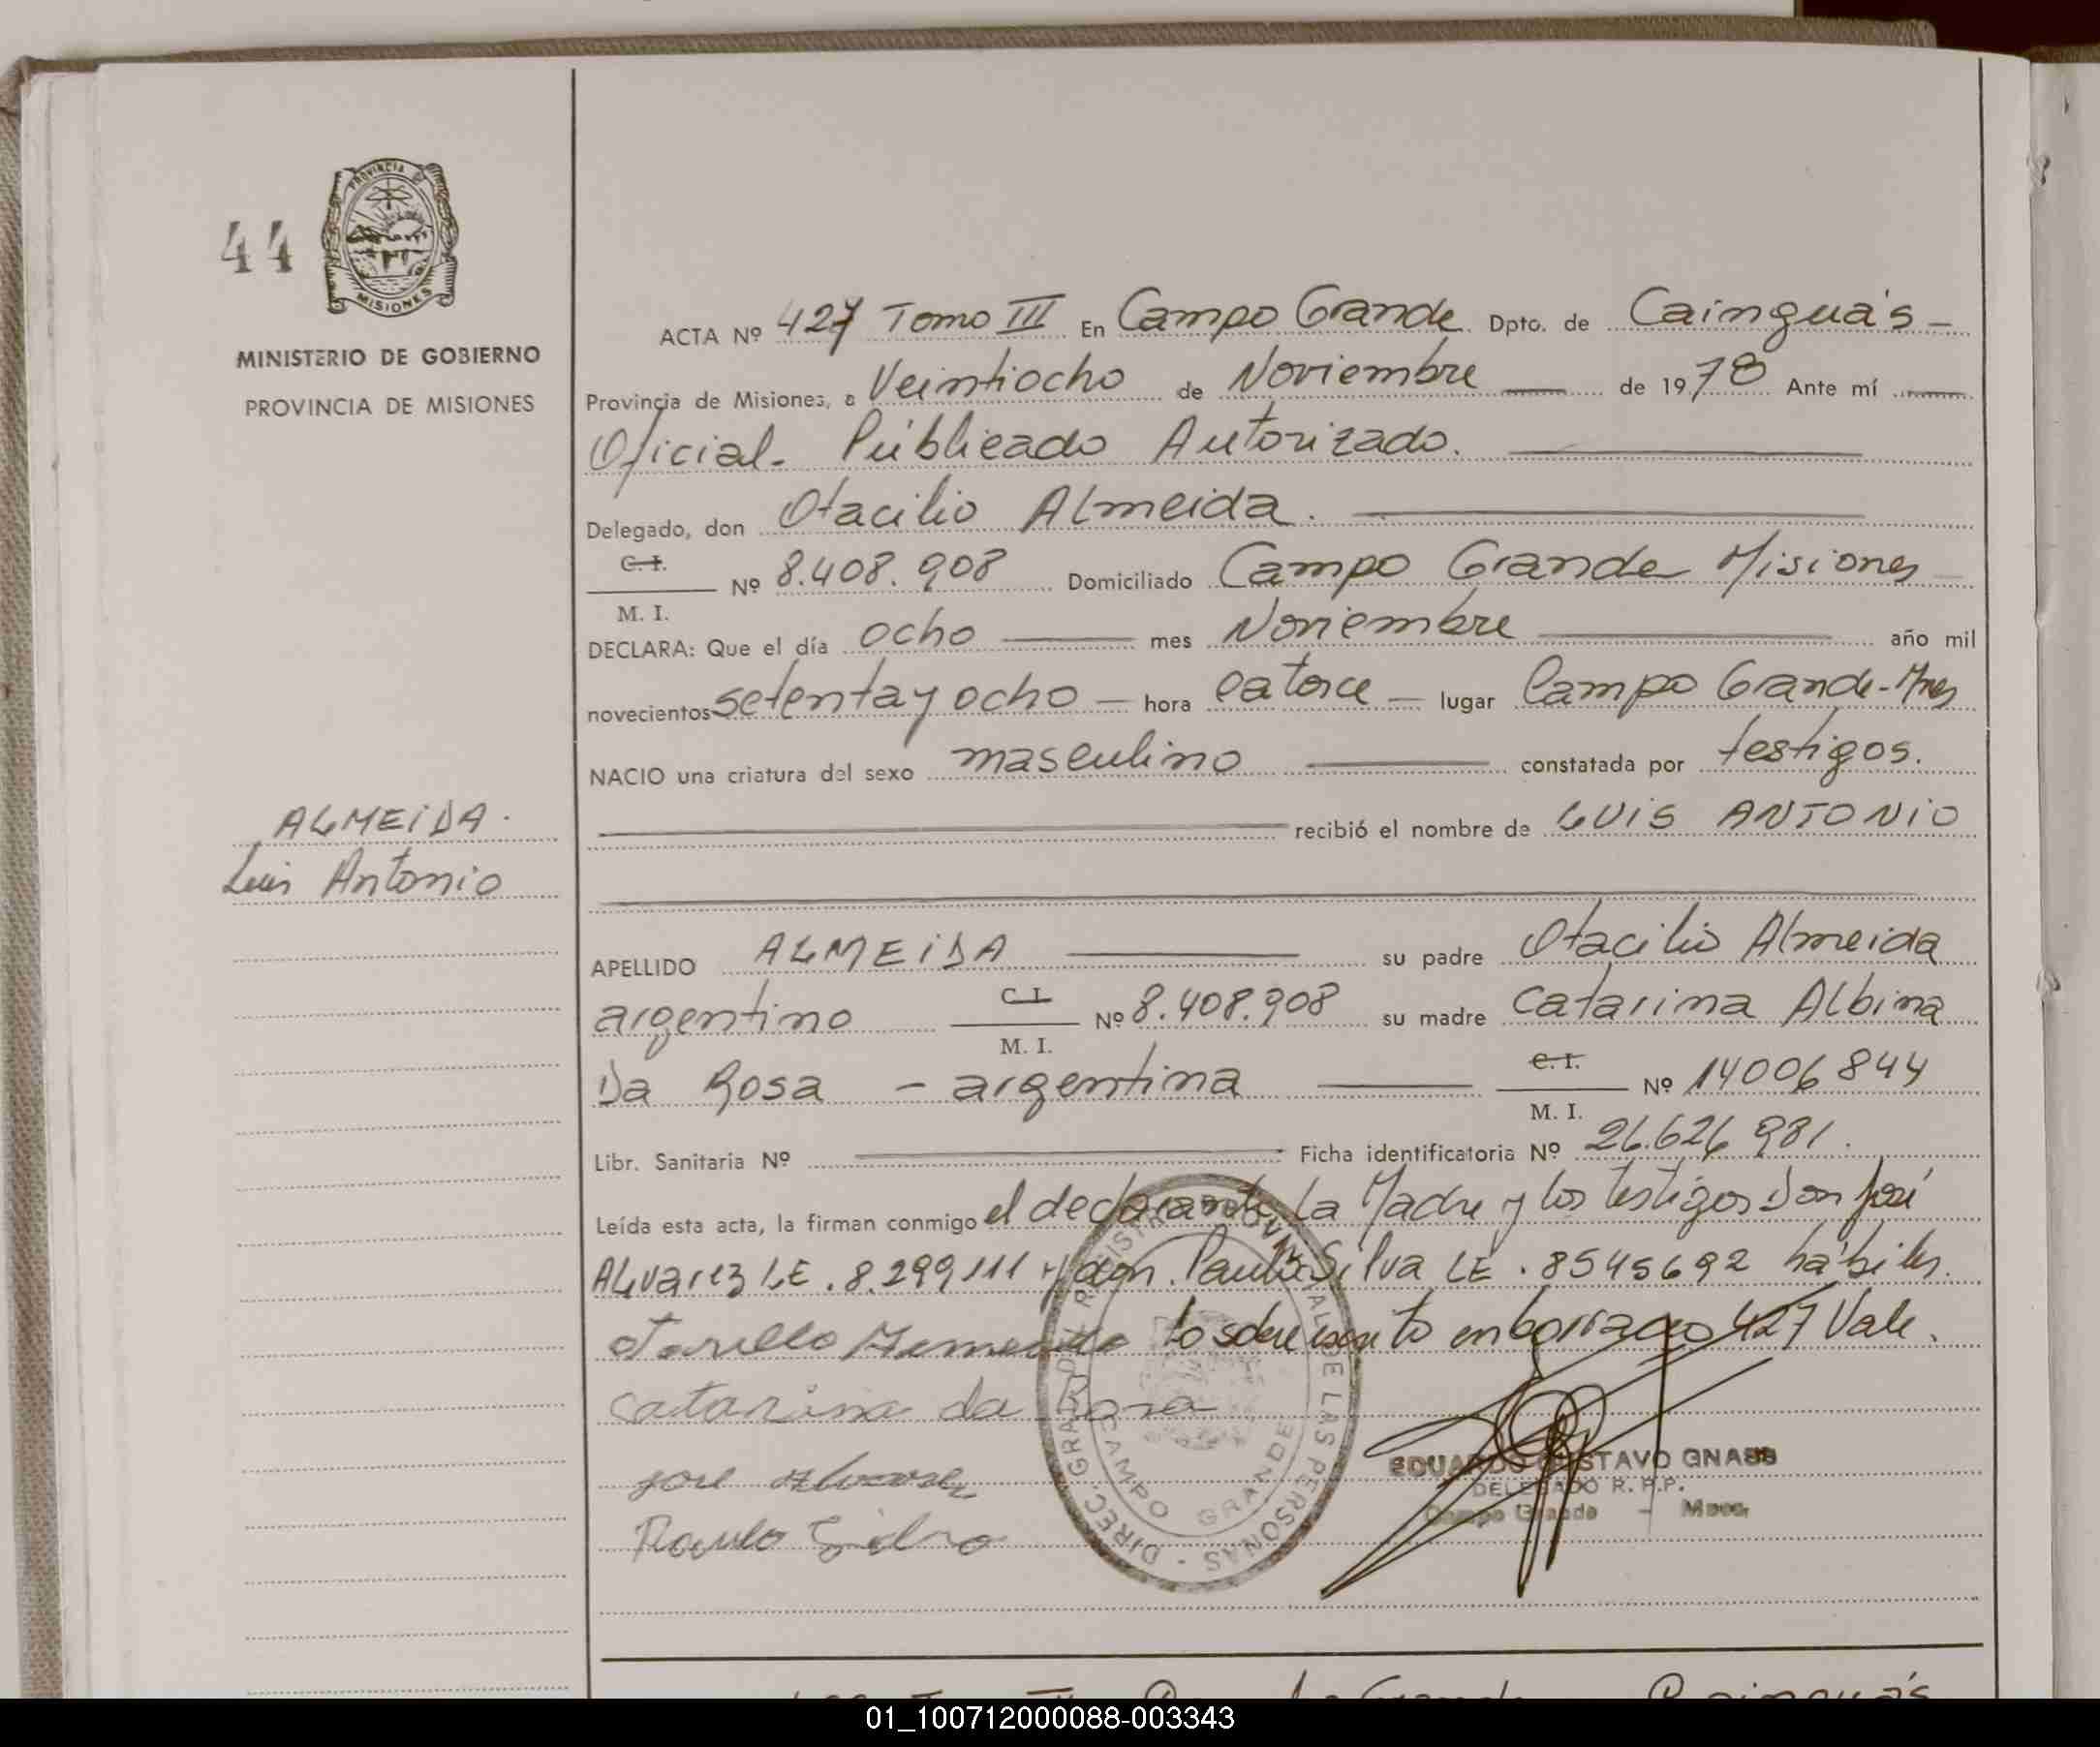 44
PROVINCIA D
MISIONES
MINISTERIO DE GOBIERNO
PROVINCIA DE MISIONES
ALMEIDA.
Luis Antonio
ACTA Nº 427 Tomo III En Campo Grande Dpto. de Cainguás
Provincia de Misiones, a Veintiocho de Noviembre de 1978 Ante mí
Oficial. Públicado Autorizado.
Delegado, don Otacilio Almeida.
C. I.
M. I. Nº 8.408.908 Domiciliado Campo Grande Misiones
DECLARA: Que el día ocho mes Noviembre año mil
novecientos setenta y ocho - hora catorce - lugar Campo Grande-Mnes
NACIO una criatura del sexo masculino constatada por testigos.
recibió el nombre de LUIS ANTONIO
APELLIDO ALMEIDA su padre Otacilio Almeida
argentino C. I. M. I. Nº 8.408.908 su madre Catarina Albina
Da Rosa - argentina C. I. M. I. Nº 14006844
Libr. Sanitaria Nº Ficha identificatoria Nº 26.626.981.
Leída esta acta, la firman conmigo el declarante, La Madre y los testigos Don José
Alvarez LE. 8.299.111 y don Paulo Silva LE. 8545692 hábiles.
lo sobre escrito en borrado 427 Vale.
Catarina da Rosa
jose
Paulo Silva
DIREC. GRAL. DEL REGISTRO PROVINCIAL DE LAS PERSONAS
CAMPO GRANDE
EDUARDO GUSTAVO GNASS
DELEGADO R. P. P.
Campo Grande - Mnes.
01_100712000088-003343